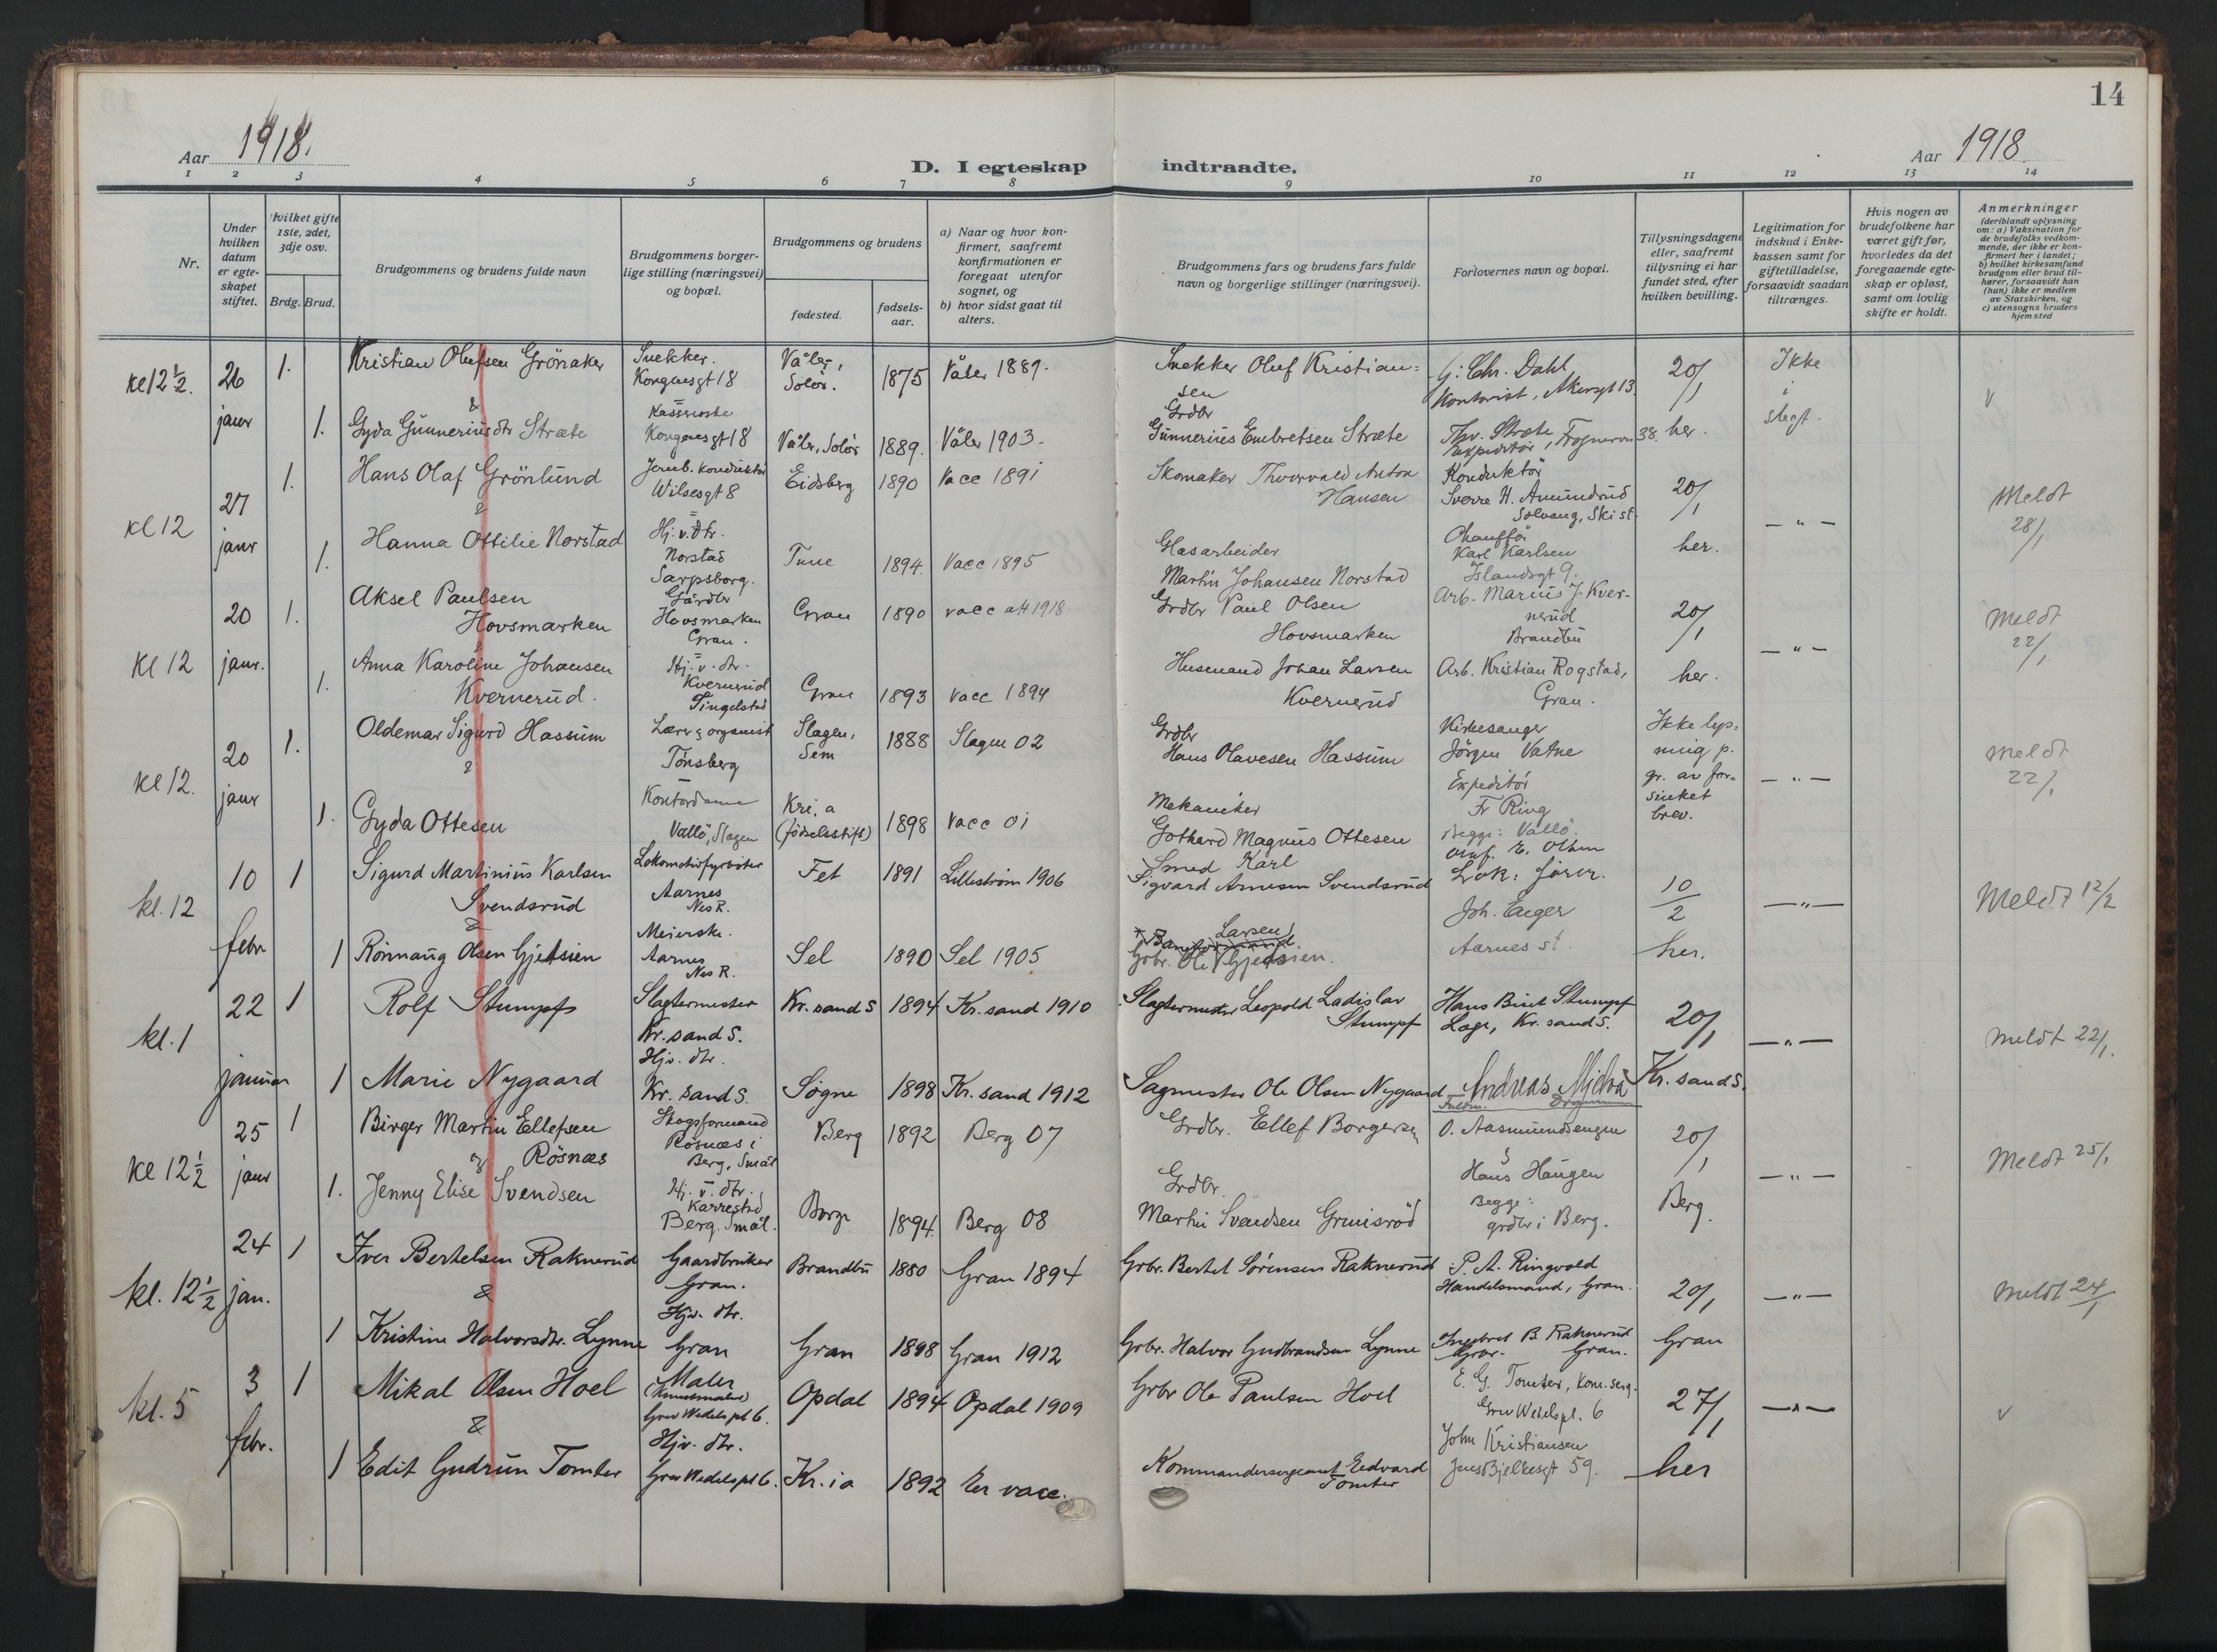 14
Aar 1918.
D. I egteskap indtraadte.
Aar 1918.
1 2 3 4 5 6 7 8 9 10 11 12 13 14
Nr.
Under hvilken datum er egteskapet stiftet.
Hvilket gifte 1ste, 2det, 3dje osv.
Brdg. Brud.
Brudgommens og brudens fulde navn
Brudgommens borgerlige stilling (næringsvei) og bopæl.
Brudgommens og brudens
fødested.
fødselsaar.
a) Naar og hvor konfirmert, saafremt konfirmationen er foregaat utenfor sognet, og
b) hvor sidst gaat til alters.
Brudgommens fars og brudens fars fulde navn og borgerlige stillinger (næringsvei).
Forlovernes navn og bopæl.
Tillysningsdagene eller, saafremt tillysning ei har fundet sted, efter hvilken bevilling.
Legitimation for indskud i Enkekassen samt for giftetilladelse, forsaavidt saadan tiltrænges.
Hvis nogen av brudefolkene har været gift før, hvorledes da det foregaaende egteskap er opløst, samt om lovlig skifte er holdt.
Anmerkninger
(deriblandt oplysning om: a) Vaksination for de brudefolks vedkommende, der ikke er konfirmert her i landet; b) hvilket kirkesamfund brudgom eller brud tilhører, forsaavidt han (hun) ikke er medlem av Statskirken, og c) utensogns bruders hjemsted
kl 12 1/2. 26 janr 1. Kristian Olufsen Grönaker Snekker. Kongensgt 18 Våler, Solör. 1875 Våler 1889. Snekker Oluf Kristiansen G. Chr. Dahl Kontorist, Akersgt 13 20/1 Ikke i slegt. v
&
1. Gyda Gunneriusdtr Stræte Kasserske Kongensgt 18 Våler, Solör 1889. Våler 1903. Grdbr Gunnerius Embretsen Stræte Thv. Stræte, Expeditör, Frognervn 38. her.
kl 12 27 janr 1. Hans Olaf Grönlund Jernb. konduktör Wilsesgt 8 Eidsberg 1890 Vacc 1891 Skomaker Thorvald Anton Hansen Konduktör Sverre H. Amundrud Solvang, Ski st. 20/1 — " — Meldt 28/1
&
1. Hanna Ottilie Norstad Hj.v. dtr. Norstad Sarpsborg. Tune 1894. Vacc 1895 Glasarbeider Martin Johansen Norstad Chaufför Karl Karlsen Islandsgt 9. her.
kl 12 20 janr. 1. Aksel Paulsen Hovsmarken Gårdbr Hovsmarken Gran. Gran 1890 vacc att 1918 Grdbr Paul Olsen Hovsmarken Arb. Marius J. Kvernerud Brandbu 20/1 — " — Meldt 22/1
1. Anna Karoline Johansen Kvernerud. Hj.v. dtr. Kvernerud Tingelstad Gran 1893 vacc 1894 Husmand Johan Larsen Kvernerud Arb. Kristian Rogstad, Gran. her.
kl 12. 20 janr 1. Oldemar Sigurd Hassum Lærer & organist Tönsberg Slagen, Sem 1888 Slagen 02 Grdbr Hans Olavesen Hassum Kirkesanger Jörgen Vatne Ikke lysning p. gr. av forsinket brev. — " — Meldt 22/1
&
1. Gyda Ottesen Kontordame Vallö, Slagen Kri.a (födselsstift) 1898 Vacc 01 Mekaniker Gothard Magnus Ottesen Expeditör Fr Ring Begge: Vallö.
kl. 12 10 febr 1 Sigurd Martinius Karlsen Svendsrud Lokomotivfyrböter Aarnes Nes R. Fet 1891 Lilleström 1906 Smed Karl Sigvard Arnesen Svendsrud Lok: förer. 10/2 — " — Meldt 12/2
&
1 Rönnaug Olsen Gjetsien Meierske. Aarnes Nes R. Sel 1890 Sel 1905 Grbr. Ole Larsen Gjetsien. Joh. Eeger Aarnes st. her.
kl. 1 22 januar 1 Rolf Stumpf Slagtermester Kr.sand S. Kr.sand S 1894 Kr. sand 1910 Slagtermester Leopold Ladislav Stumpf Hans Stumpf Læge, Kr. sand S. 20/1 — " — Meldt 22/1.
1 Marie Nygaard Hjv. dtr. Kr. sand S. Søgne 1898 Kr. sand 1912 Sagmester Ole Olsen Nygaard Andreas Kr. sand S.
kl 12 1/2 25 janr 1 Birger Martin Ellefsen Rösnæs Skogsformand Rösnæs i Berg, Smål Berg 1892 Berg 07 Grdbr. Ellef Borgersen O. Aasmundsengen & 20/1 — " — Meldt 25/1
&
1. Jenny Elise Svendsen Hj.v. dtr. Karrestad Berg. Smål. Borge 1894. Berg 08 Grdbr. Martin Svendsen Grimsröd Hans Haugen Begge: grdbr i Berg. Berg.
kl. 12 1/2 24 jan. 1 Iver Bertelsen Raknerud Gaardbruker Gran. Brandbu 1880 Gran 1894 Grbr. Bertel Sörensen Raknerud P. A. Ringvold Handelsmand, Gran. 20/1 — " — Meldt 24/1
&
1 Kristine Halvorsdtr. Lynne Hjv. dtr. Gran Gran 1898 Gran 1912 Grbr. Halvor Gudbrandsen Lynne Ingebret B. Raknerud Grbr. Gran. Gran
kl. 5 3 febr. 1 Mikal Olsen Hoel Maler (Kunstmaler) Grev Wedels pl 6. Opdal 1894 Opdal 1909 Grbr Ole Paulsen Hoel E. G. Tomter, Kom. serg. Grev Wedelspl. 6 27/1 — " — v
&
1 Edit Gudrun Tomter Hjv. dtr. Grev Wedels pl 6. Kr.ia 1892 Er vacc. Kommandersergeant Eedvard Tomter John Kristiansen Jens Bjelkesgt 59. her